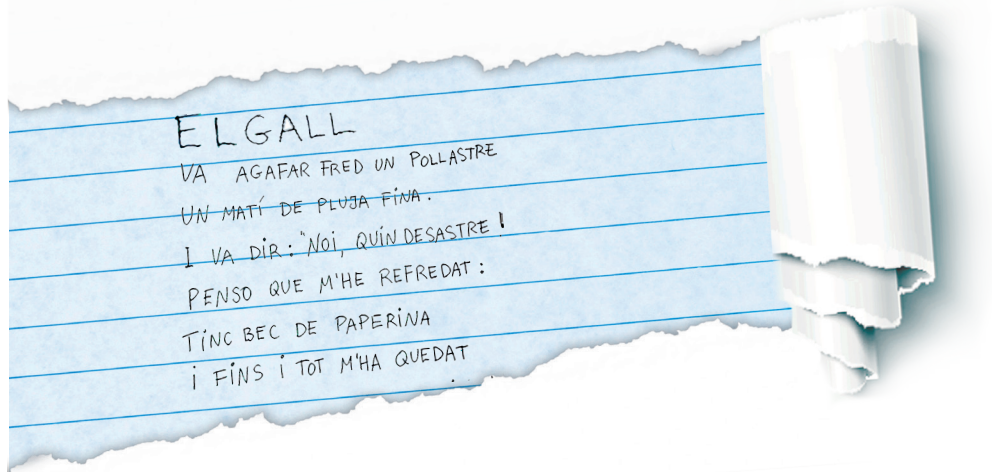 EL GALL
VA AGAFAR FRED UN POLLASTRE
UN MATÍ DE PLUJA FINA.
I VA DIR: "NOI, QUIN DESASTRE!
PENSO QUE M'HE REFREDAT:
TINC BEC DE PAPERINA
I FINS I TOT M'HA QUEDAT